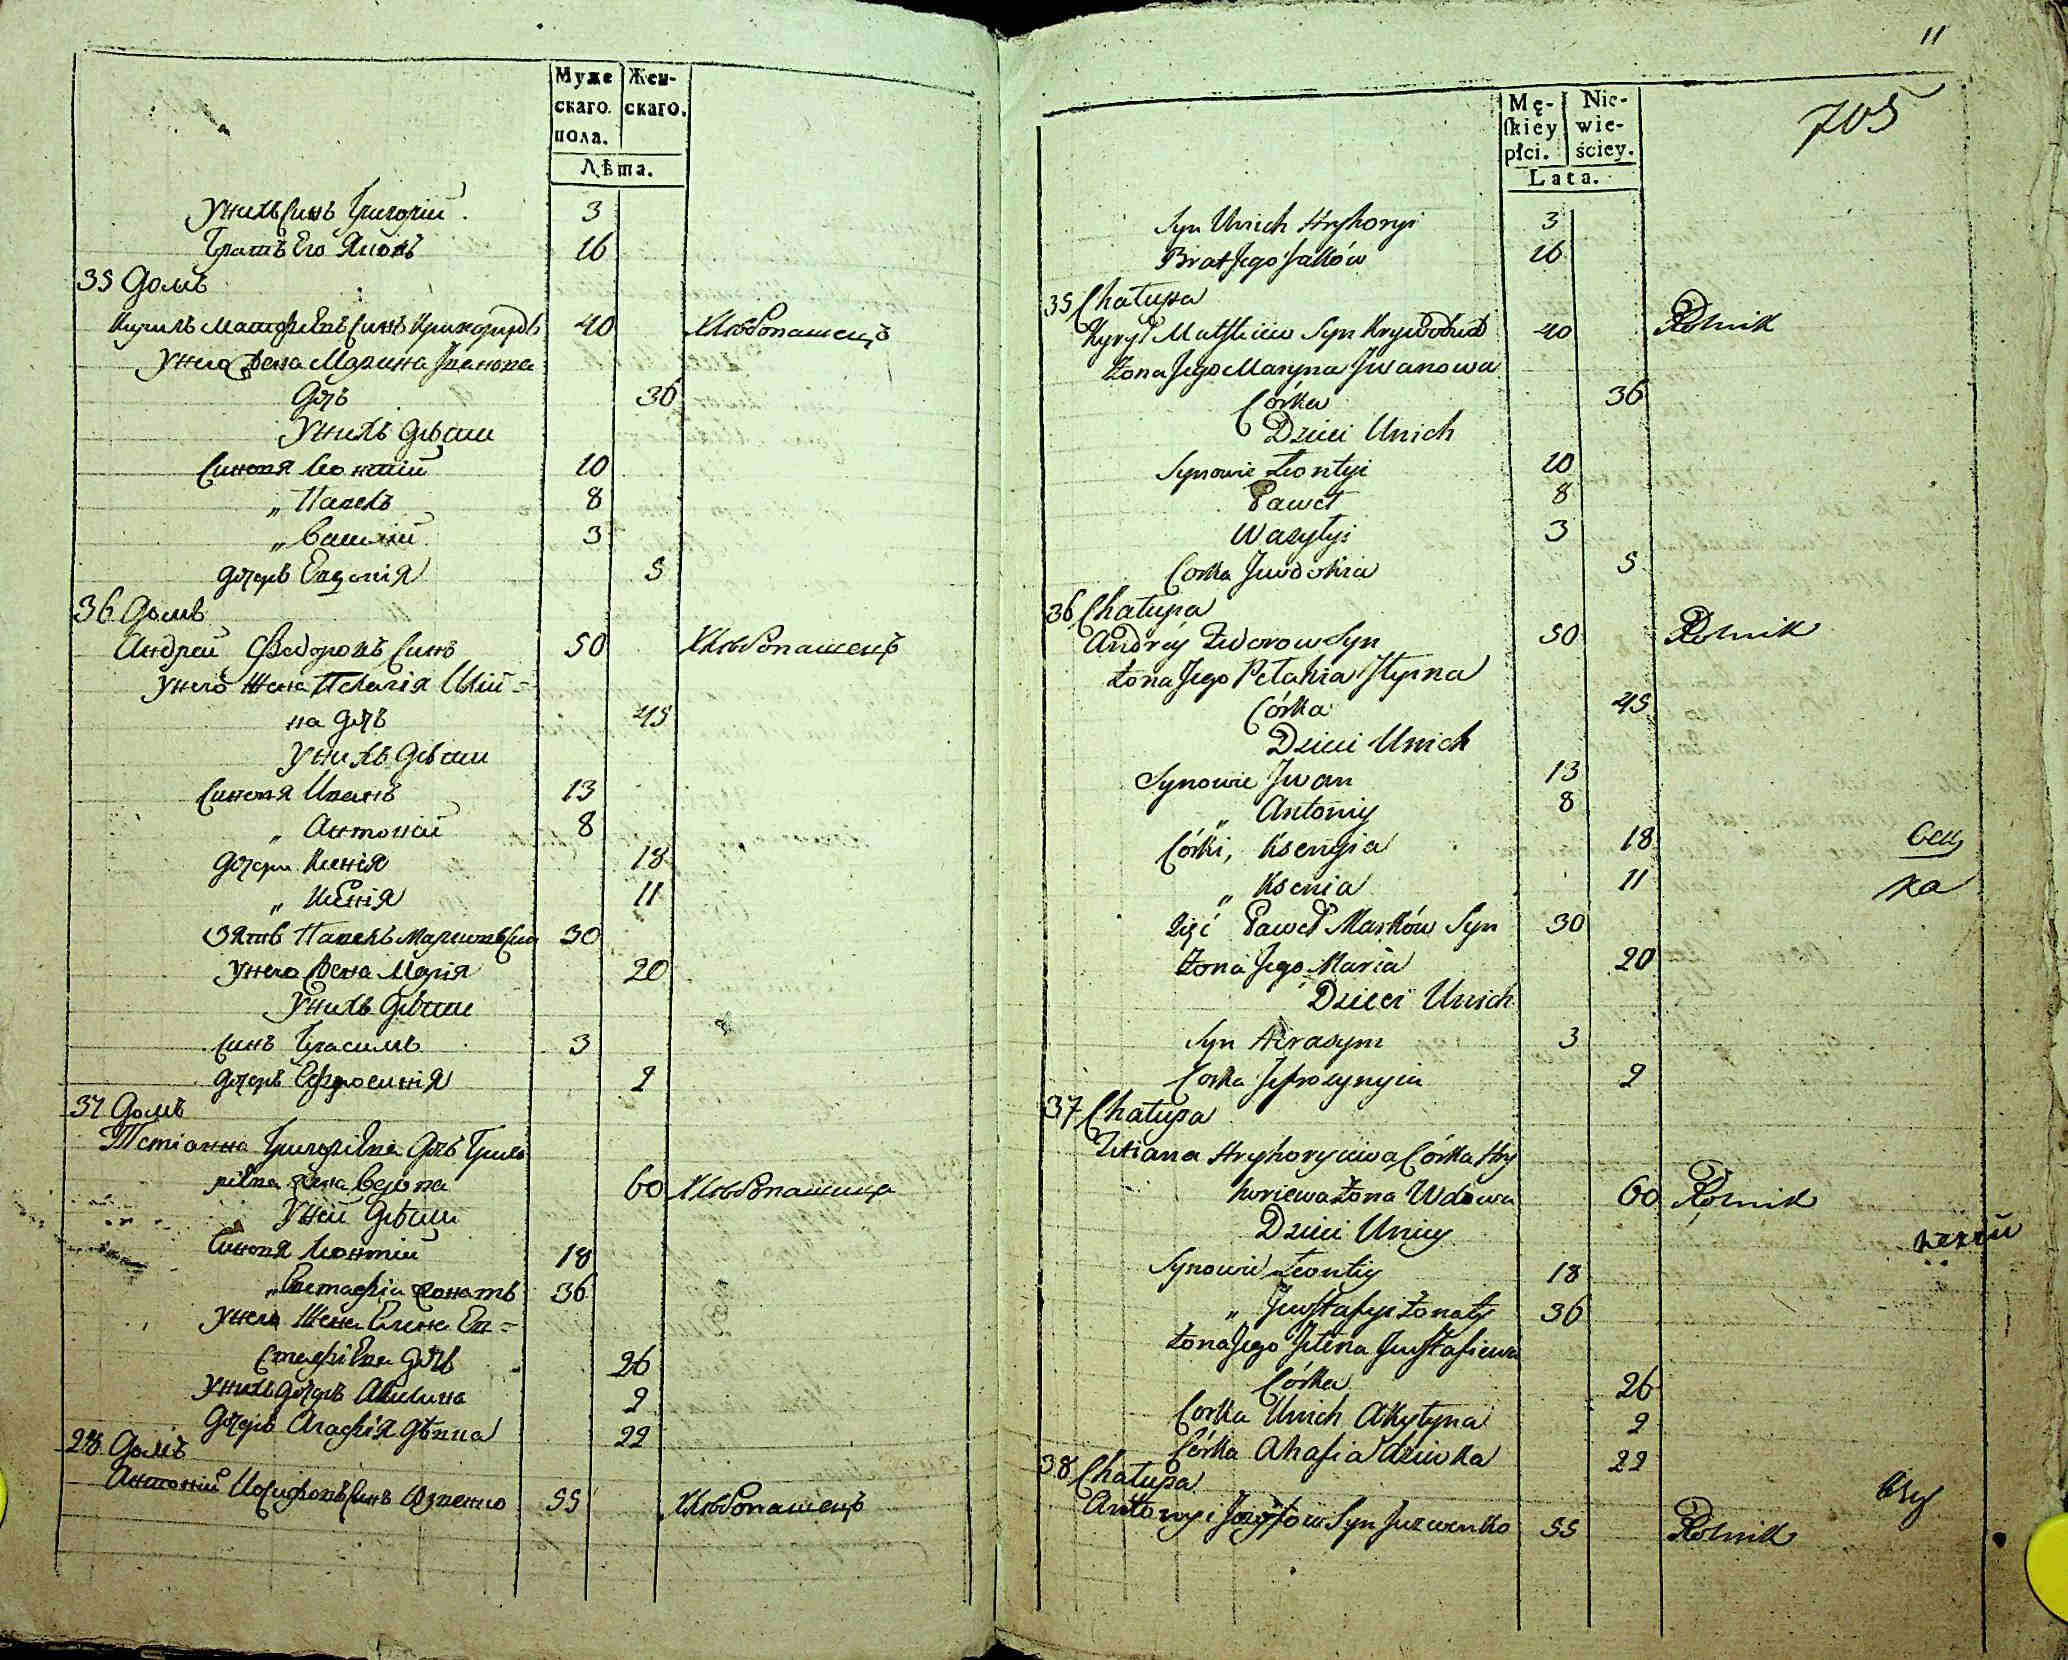 Муже
скаго.
пола.
Жен-
скаго.
Лѣта.
У нихъ Синъ Григорій 3
Братъ Его Яковъ 16
35 Домъ
Кирилъ Матфѣевъ Синъ 40 Хлѣбопашецъ
У него Жена Марина Іванова
Дочь 36
У нихъ Дѣти
Синовя Леонтій 10
„ Павелъ 8
„ Василій 3
Дочерь Евдокія 5
36 Домъ
Андрей Федоровъ Синъ 50 Хлѣбопашецъ
У него Жена Пелагія Иліи=
на Дочь 45
У нихъ Дѣти
Синовя Иванъ 13
„ Антоній 8
Дочери Ксенія 18
„ Ксенія 11
Зять Павелъ Марковъ Синъ 30
У него Жена Марія 20
У нихъ Дѣти
Синъ Герасимъ 3
Дочерь Ефросинія 2
37 Домъ
Тетіанна Григоріева Дочь Григо
ріева Жена Вдова 60 Хлѣбопашица
У ней Дѣти
Синовя Леонтій 18
„ Евстафій Жонатъ 36
У него Жена Елена Ев=
стафіева Дочь 26
У нихъ Дочерь Акилина 2
Дочерь Агафія Дѣвка 22
38 Домъ
Антоній Иосифовъ Синъ Юзвенко 55 Хлѣбопашецъ
11
705
Mę-
skiey
płci.
Nie-
wie-
ściey.
Lata.
Syn Unich Hryhoryi 3
Brat Jego Jakow 16
35 Chałupa
Kyrył Matfeiew Syn Krywobud 40 Rolnik
Żona Jego Maryna Jwanowa
Córka 36
Dzieci Unich
Synowie Leontyi 10
Paweł 8
Wasylyi 3
Corka Jewdokia 5
36 Chałupa
Andrey Fedorow Syn 50 Rolnik
Żona Jego Pelahia Jlyina
Córka 45
Dzieci Unich
Synowie Jwan 13
„ Antoniy 8
Córki, Ksenyia 18
„ Ksenia 11
Zięć Paweł Marków Syn 30
Żona Jego Maria 20
Dzieci Unich
Syn Herasym 3
Corka Jefrosynyia 2
37 Chałupa
Tetiana Hryhoryiewa Córka Hry
horiewa Żona Wdowa 60 Rolnik
Dzieci Uniey
Synowie Leontiy 18
„ Jewstafyi Żonaty 36
Żona Jego Jelena Jewstafiewa
Córka 26
Corka Unich Akylyna 2
Córka Ahafia dziwka 22
38 Chałupa
Antonyi Jozefow Syn Juzwenko 55 Rolnik